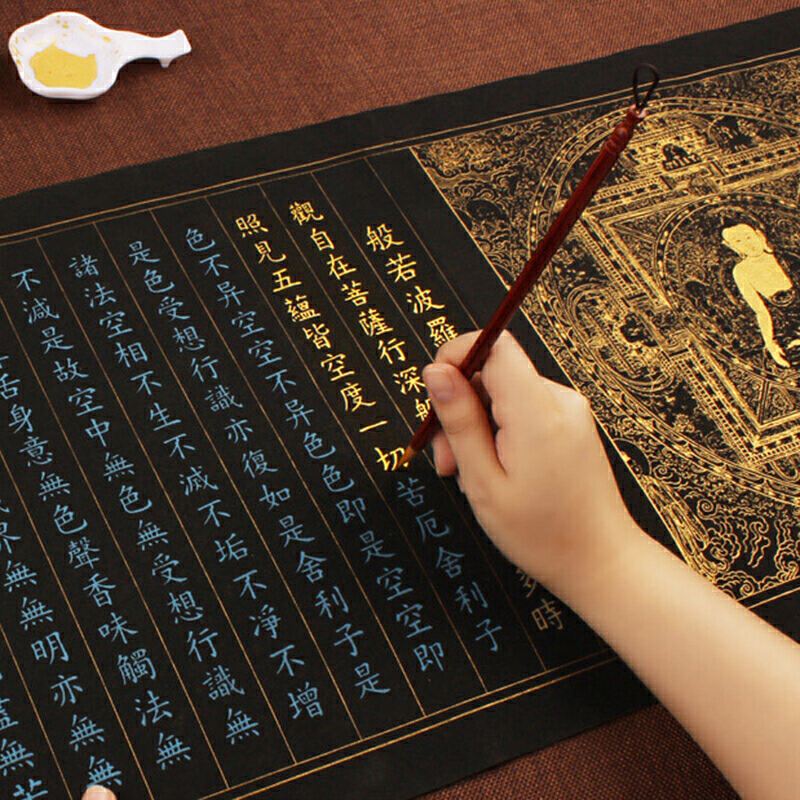 般若波羅
觀自在菩薩行深般多時
照見五蘊皆空度一切苦厄舍利子
色不异空空不异色色即是空空即
是色受想行識亦復如是舍利子是
諸法空相不生不滅不垢不淨不增
不減是故空中無色無受想行識無
舌身意無色聲香味觸法無
界無無明亦無無
盡無苦